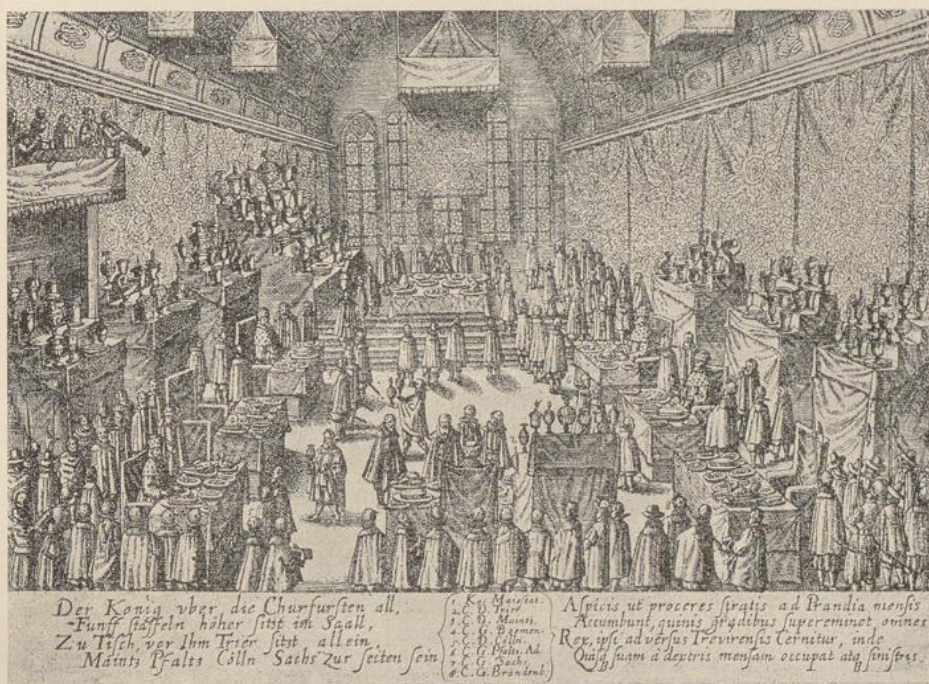 Der König vber die Churfursten all,
Funff staffeln höher sitzt im Saall,
Zu Tisch, vor Ihm Trier sitzt allein
Maintz Pfaltz Cölln Sachs zur seiten sein
1. Ko. Maiestat.
2. C. D. Trier.
3. C. D. Maintz.
4. C. G.
5. C. D. Cölln.
6. C. G. Pfaltz. Ad.
7. C. G. Sachs.
8. C. G. Brandenb.
Aspicis, ut proceres stratis ad Prandia mensis
Accumbunt, quinis gradibus supereminet omnes
Rex, ipsi adversus Trevirensis Cernitur, inde
suam à dextris mensam occupat atq sinistris.